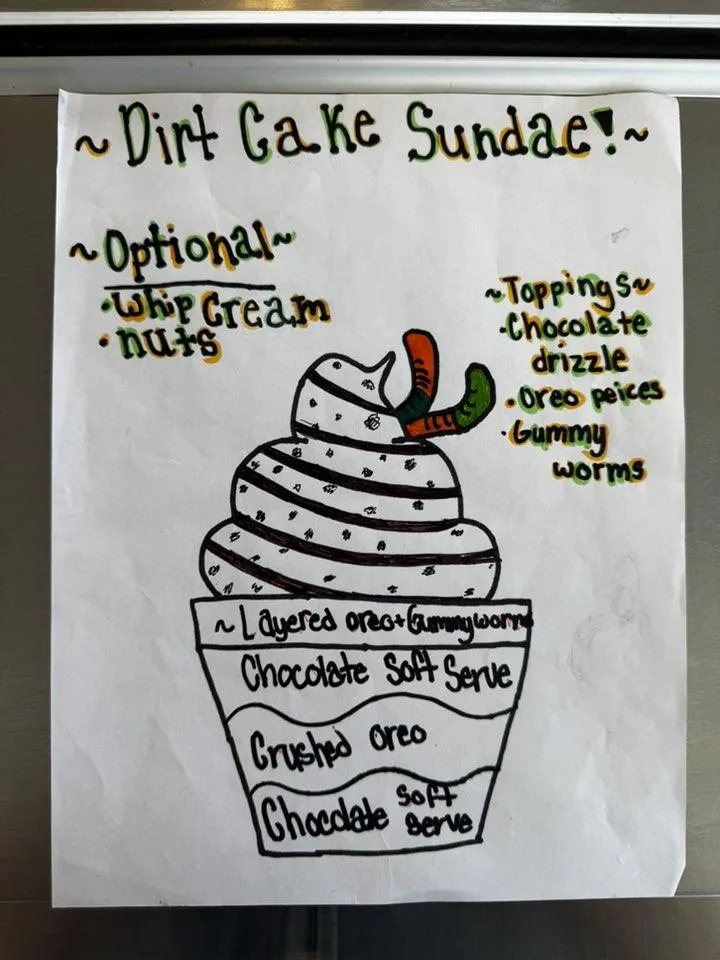 ~Dirt Cake Sundae!~
~Optional~
•Whip Cream
•nuts
~Toppings~
•Chocolate
drizzle
•Oreo peices
•Gummy
worms
~Layered oreo+Gummyworms
Chocolate Soft Serve
Crushed Oreo
Chocolate Soft
Serve